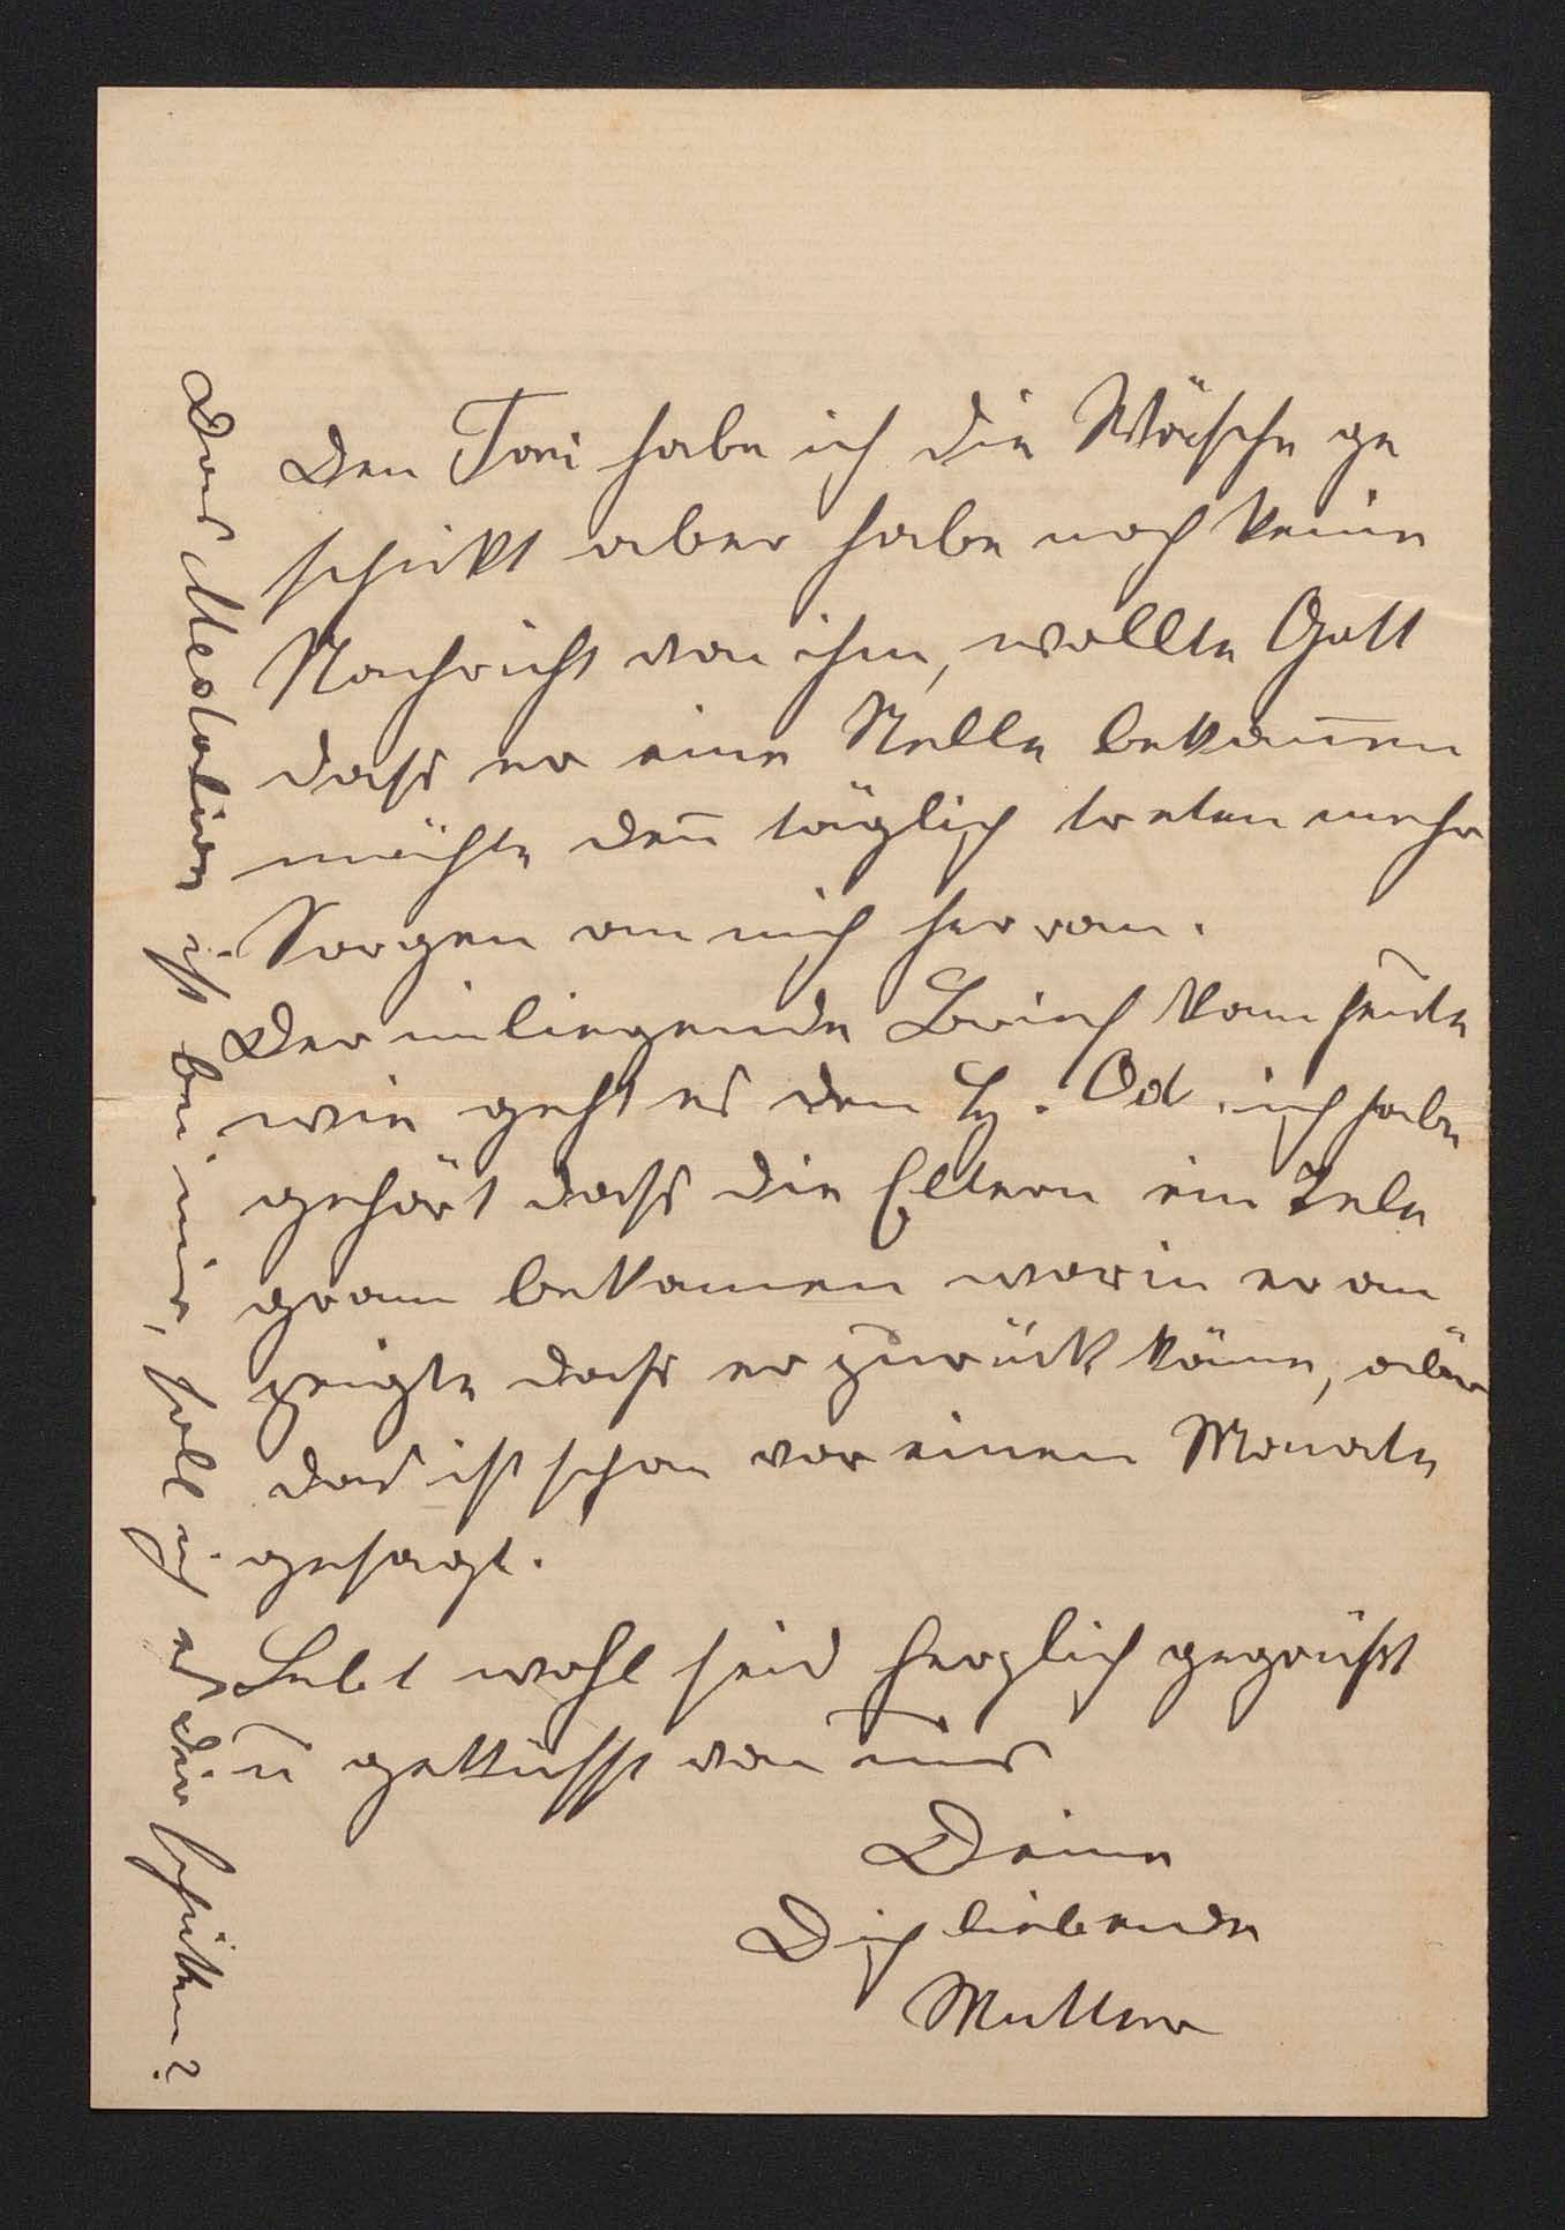 Den Toni habe ich die Wäsche ge
schikt aber habe noch keine
Nachricht von ihm, wollte Gott
dass er eine Stelle bekom̅en
möchte den̅ täglich treten mehr
Sorgen an mich herran.
Der inliegende Brief kam heute
wie geht es den H. Od. ich habe
gehört dass die Eltern ein Tele
gram bekamen worin er an
zeigte dass er zurück käme, aber
das ist schon vor einen Monate
gesagt.
Lebt wohl seid herzlich gegrüßt
u̅ geküsst von uns
Deine
Dich liebende
Mutter
Das Medalion ist bei mir, soll ich es dir schiken?